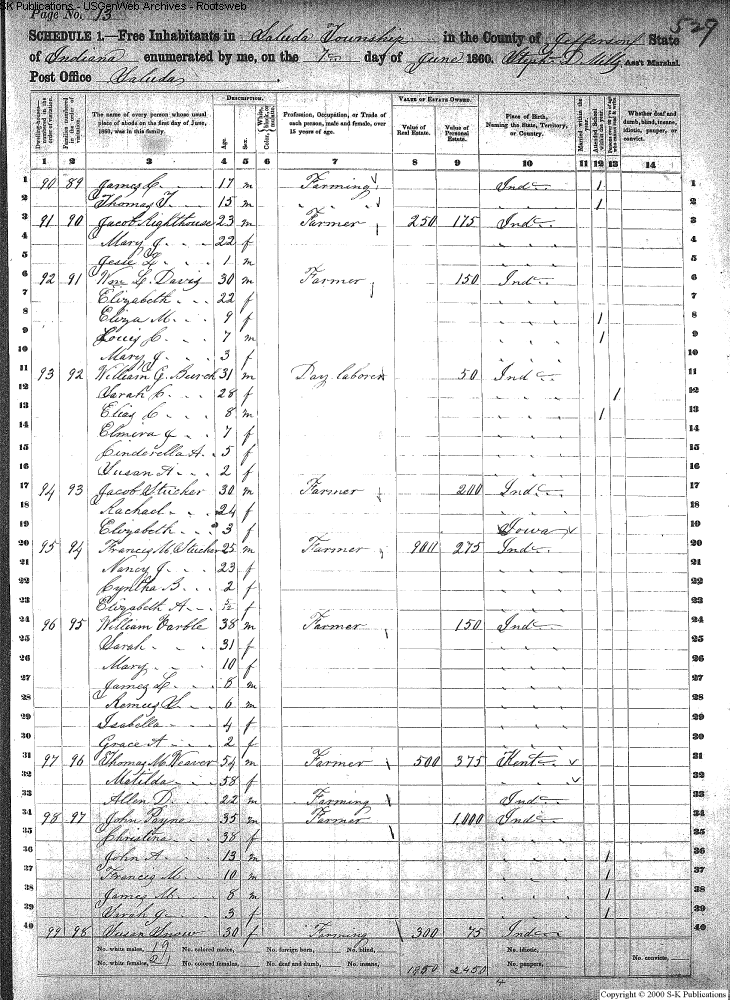 SK Publications - USGenWeb Archives - Rootsweb
Page No. 13
529
SCHEDULE 1.—Free Inhabitants in Saluda Township in the County of Jefferson State
of Indiana enumerated by me, on the 7th day of June 1860. Ass't Marshal.
Post Office Saluda
Dwelling-houses numbered in the order of visitation.
Families numbered in the order of visitation.
The name of every person whose usual place of abode on the first day of June, 1860, was in this family.
DESCRIPTION.
Age.
Sex.
Color, White, black, or mulatto.
Profession, Occupation, or Trade of each person, male and female, over 15 years of age.
VALUE OF ESTATE OWNED.
Value of Real Estate.
Value of Personal Estate.
Place of Birth, Naming the State, Territory, or Country.
Married within the year.
Attended School within the year.
Whether deaf and dumb, blind, insane, idiotic, pauper, or convict.
1 2 3 4 5 6 7 8 9 10 11 12 13 14
1 90 89 James C. 17 m Farming Ind 1 1
2 Thomas F. 15 m " " 1 2
3 91 90 Jacob Righthouse 23 m Farmer 250 175 Ind 3
4 Mary J. 22 f 4
5 Jesse L. 1 m 5
6 92 91 Wm L. Davis 30 m Farmer 150 Ind 6
7 Elizabeth 22 f 7
8 Eliza M. 9 f 1 8
9 Louis C. 7 m 1 9
10 Mary J. 3 f 10
11 93 92 William G. Burch 31 m Day laborer 50 Ind 11
12 Sarah C. 28 f 1 12
13 Elias C. 8 m 1 13
14 Elmira J. 7 f 14
15 Cinderella A. 5 f 15
16 Susan A. 2 f 16
17 94 93 Jacob Stucker 30 m Farmer 200 Ind 17
18 Rachael 24 f 18
19 Elizabeth 3 f Iowa 19
20 95 94 Francis M. Stucker 25 m Farmer 900 275 Ind 20
21 Nancy J. 23 f 21
22 Cyntha B. 2 f 22
23 Elizabeth A. 5/12 f 23
24 96 95 William Varble 38 m Farmer 150 Ind 24
25 Sarah 31 f 25
26 Mary 10 f 26
27 James L. 8 m 27
28 Remus 6 m 28
29 Isabella 4 f 29
30 Grace A 2 f 30
31 97 96 Thomas M. Weaver 54 m Farmer 500 375 Kent 31
32 Matilda 58 f 32
33 Allen D. 22 m Farming Ind 33
34 98 97 John Payne 35 m Farmer 1,000 Ind 34
35 Christina 38 f 35
36 John A 13 m 1 36
37 Francis M. 10 m 1 37
38 James M. 8 m 1 38
39 Sarah J. 3 f 1 39
40 99 98 Susan Snow 30 f Farming 300 75 Ind 40
No. white males, 19 No. colored males, No. foreign born, No. blind, No. idiotic, No. convicts,
No. white females, 21 No. colored females, No. deaf and dumb, No. insane, 1950 2450 No. paupers,
Copyright © 2000 S-K Publications